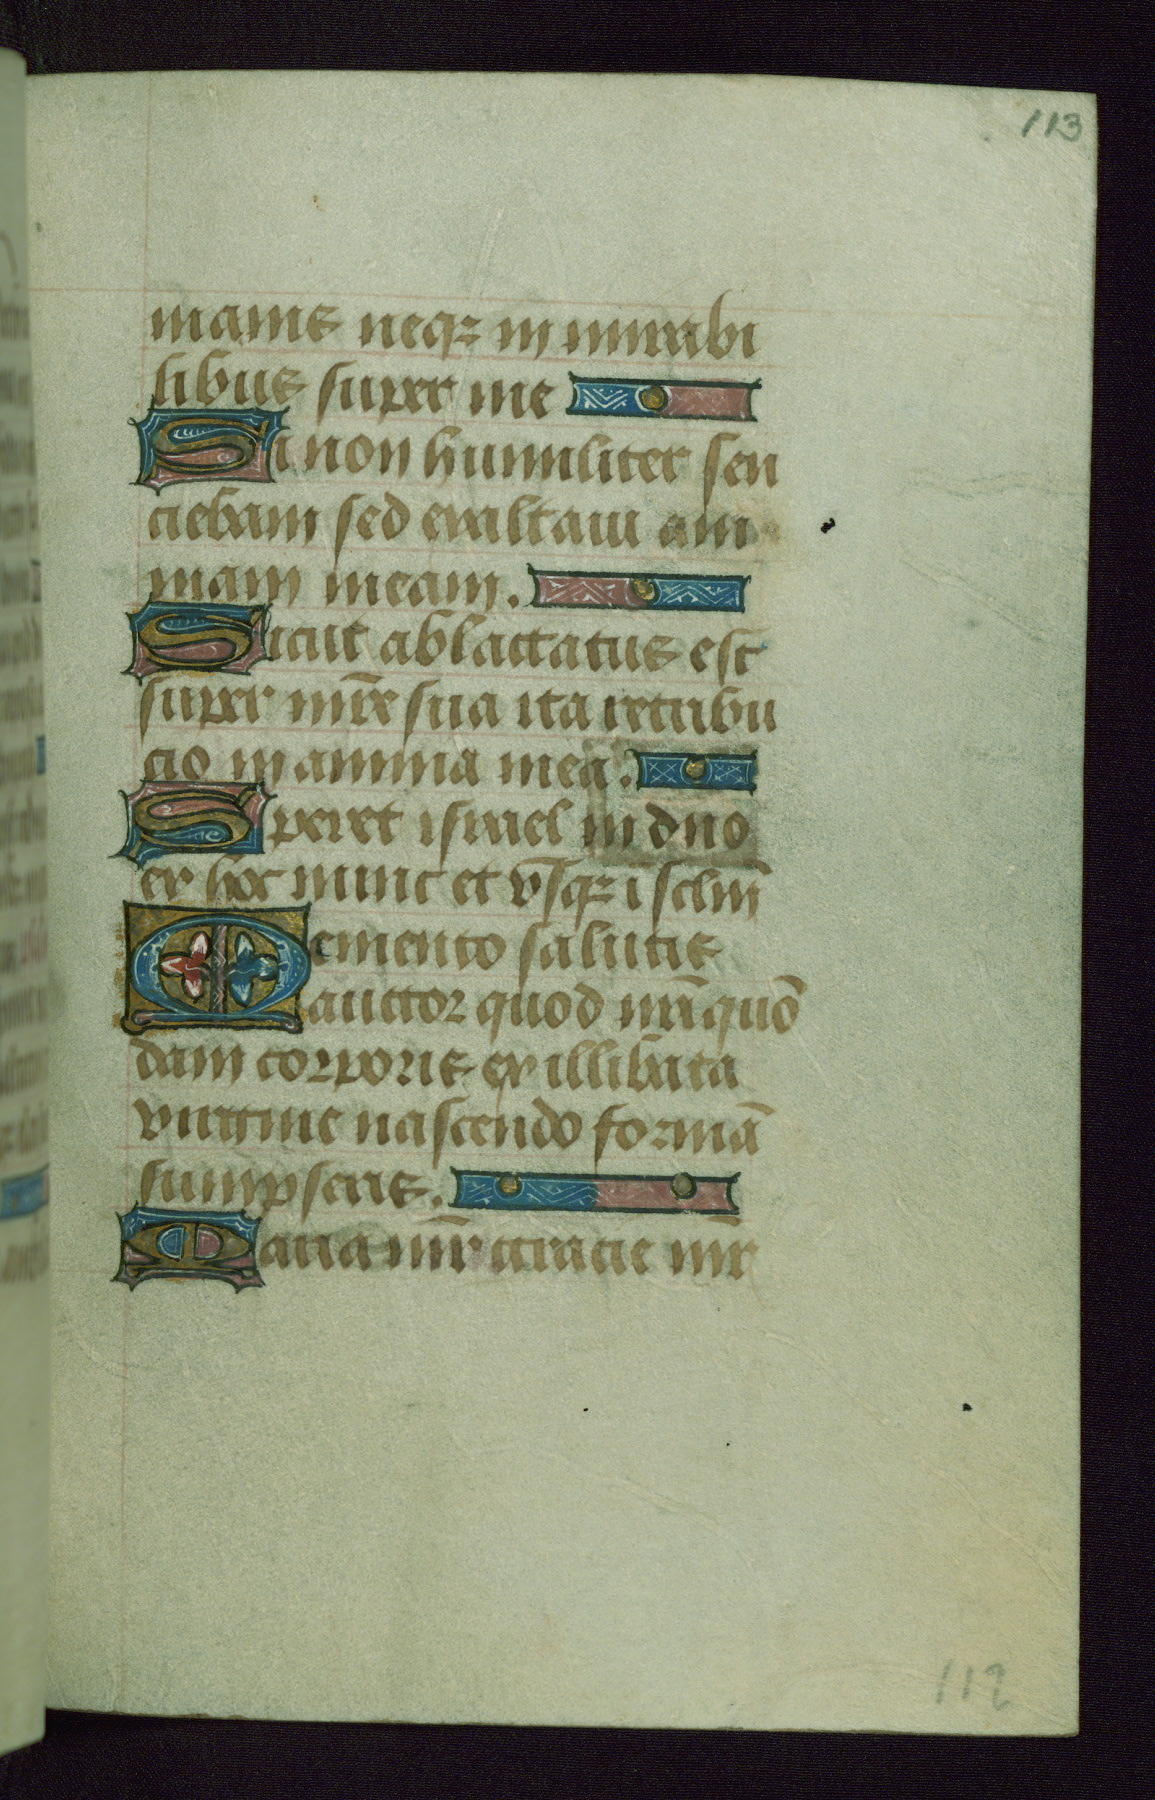 113
manis neq3 in mirabi
libus super me
Si non humiliter sen
ciebam sed exaltaui ani
mam meam.
Sicut ablactatus est
super mr̄e sua ita retribu
cio in anima mea.
Speret israel in dño
ex hoc nunc et vsq3 ī sclm̄
Memento salutis
auctor quod nr̄i quon̄
dam corporis ex illibata
virgine nascendo formā
sumpseris.
Maria mr̄ gracie mr̄
112